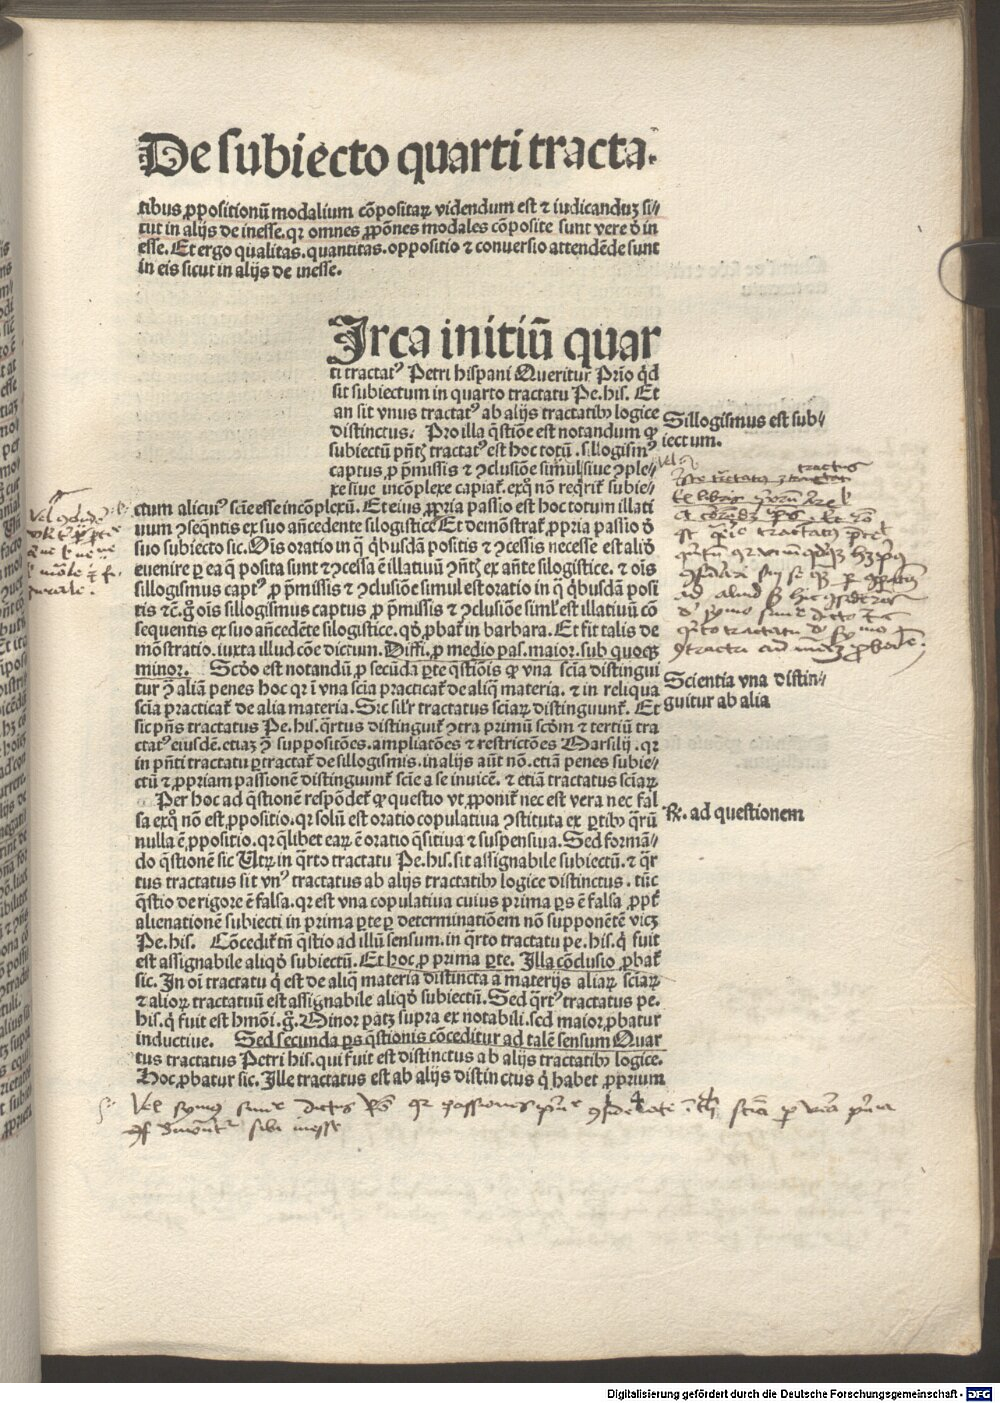 De subiecto quarti tracta.
tibus ꝓpositionū modalium cōpositaꝝ videndum est ⁊ iudicanduꝫ si⸗
cut in alijs de inesse. qꝛ omnes ꝓpōnes modales cōposite sunt vere ð in
esse. Et ergo qualitas. quantitas. oppositio ⁊ conuersio attendēde sunt
in eis sicut in alijs de inesse.
Irca initiū quar
ti tractatꝰ Petri hispani Queritur Prīo qd̄
sit subiectum in quarto tractatu Pe. his. Et
an sit vnus tractatꝰ ab alijs tractatibꝫ logice
distinctus. Pro illa q̄stiōe est notandum ꝙ
subiectū pn̄tꝭ tractatꝰ est hoc totū. sillogismꝰ
captus ꝓ p̄missis ⁊ ꝯclusiōe simul siue ꝯple⸗
xe siue incōplexe capiat̄. exq̄ nō req̄rit̄ subie⸗
ctum alicuiꝰ scīe esse incōplexū. Et eius ꝓpria passio est hoc totum illati
uum ꝯseq̄ntis ex suo an̄cedente silogistice Et demōstrat̄ ꝓpria passio ð
suo subiecto sic. Oīs oratio in q̄ q̇busdā positis ⁊ ꝯcessis necesse est alið
euenire ꝑ ea q̄ posita sunt ⁊ ꝯcessa ē illatiuū ꝯn̄tꝭ ex an̄te silogistice. ⁊ oīs
sillogismus captꝰ ꝓ p̄missis ⁊ ꝯclusiōe simul est oratio in q̄ q̇busdā posi
tis ⁊ēͨ. g̊ oīs sillogismus captus ꝓ p̄missis ⁊ ꝯclusiōe siml̄ est illatiuū cō
sequentis ex suo an̄cedēte silogistice. qð ꝓbat̄ in barbara. Et fit talis de
mōstratio. iuxta illud cōe dictum. Diffi. ꝑ medio pas. maior. sub quoqꝫ
minor. Scðo est notandū ꝓ secūda ꝑte q̄stiōis ꝙ vna scīa distingui
tur ꝯ̄ aliā penes hoc qꝛ ī vna scīa practicat̄ de aliq̄ materia. ⁊ in reliqua
scīa practicat̄ de alia materia. Sic sil̄r tractatus sciaꝝ distinguunt̄. Et
sic pn̄s tractatus Pe. his. q̄rtus distinguit̄ ꝯtra primū scðm ⁊ tertiū tra
ctatꝰ eiusdē. etiaꝫ ꝯ̄ suppositōes. ampliatōes ⁊ restrictōes Marsilij. qꝛ
in pn̄ti tractatu ꝑtractat̄ de sillogismis. in alijs aūt nō. etiā penes subie⸗
ctū ⁊ ꝓpriam passionē distinguunt̄ scīe a se inuicē. ⁊ etiā tractatus sciaꝝ
Per hoc ad q̄stionē respōdet̄ ꝙ questio vt ꝓponit̄ nec est vera nec fal
sa exq̄ nō est ꝓpositio. qꝛ solū est oratio copulatiua ꝯstituta ex ꝑtibꝫ q̄rū
nulla ē ꝓpositio. qꝛ q̄libet eaꝝ ē oratio q̄sitiua ⁊ suspensiua. Sed formā⸗
do q̄stionē sic Vtꝝ in q̄rto tractatu Pe. his. sit assignabile subiectū. ⁊ q̄r
tus tractatus sit vnꝰ tractatus ab alijs tractatibꝫ logice distinctus. tūc
q̄stio de rigore ē falsa. qꝛ est vna copulatiua cuius prima ꝑs ē falsa ꝓpt̄
alienationē subiecti in prima ꝑte ꝑ determinatiōem nō supponētē vicꝫ
Pe. his. Cōcedit̄ tn̄ q̄stio ad illū sensum. in q̄rto tractatu pe. his. q̇ fuit
est assignabile aliqð subiectū. Et hoc ꝓ prima ꝑte. Illa cōclusio ꝓbat̄
sic. In oī tractatu q̇ est de aliq̄ materia distincta a materijs aliaꝝ sciaꝝ
⁊ alioꝝ tractatuū est assignabile aliqð subiectū. Sed q̄rtꝰ tractatus pe.
his. q̇ fuit est hmōi. g̊. Minor patꝫ supra ex notabili. sed maior ꝓbatur
inductiue. Sed secunda ꝑs q̄stionis cōceditur ad talē sensum Quar
tus tractatus Petri his. qui fuit est distinctus ab alijs tractatibꝫ logice.
Hoc ꝓbatur sic. Ille tractatus est ab alijs distinctus q̇ habet ꝓprium
Sillogismus est sub⸗
iectum.
Scientia vna distin⸗
guitur ab alia
Rͬ. ad questionem
Digitalisierung gefördert durch die Deutsche Forschungsgemeinschaft - DFG